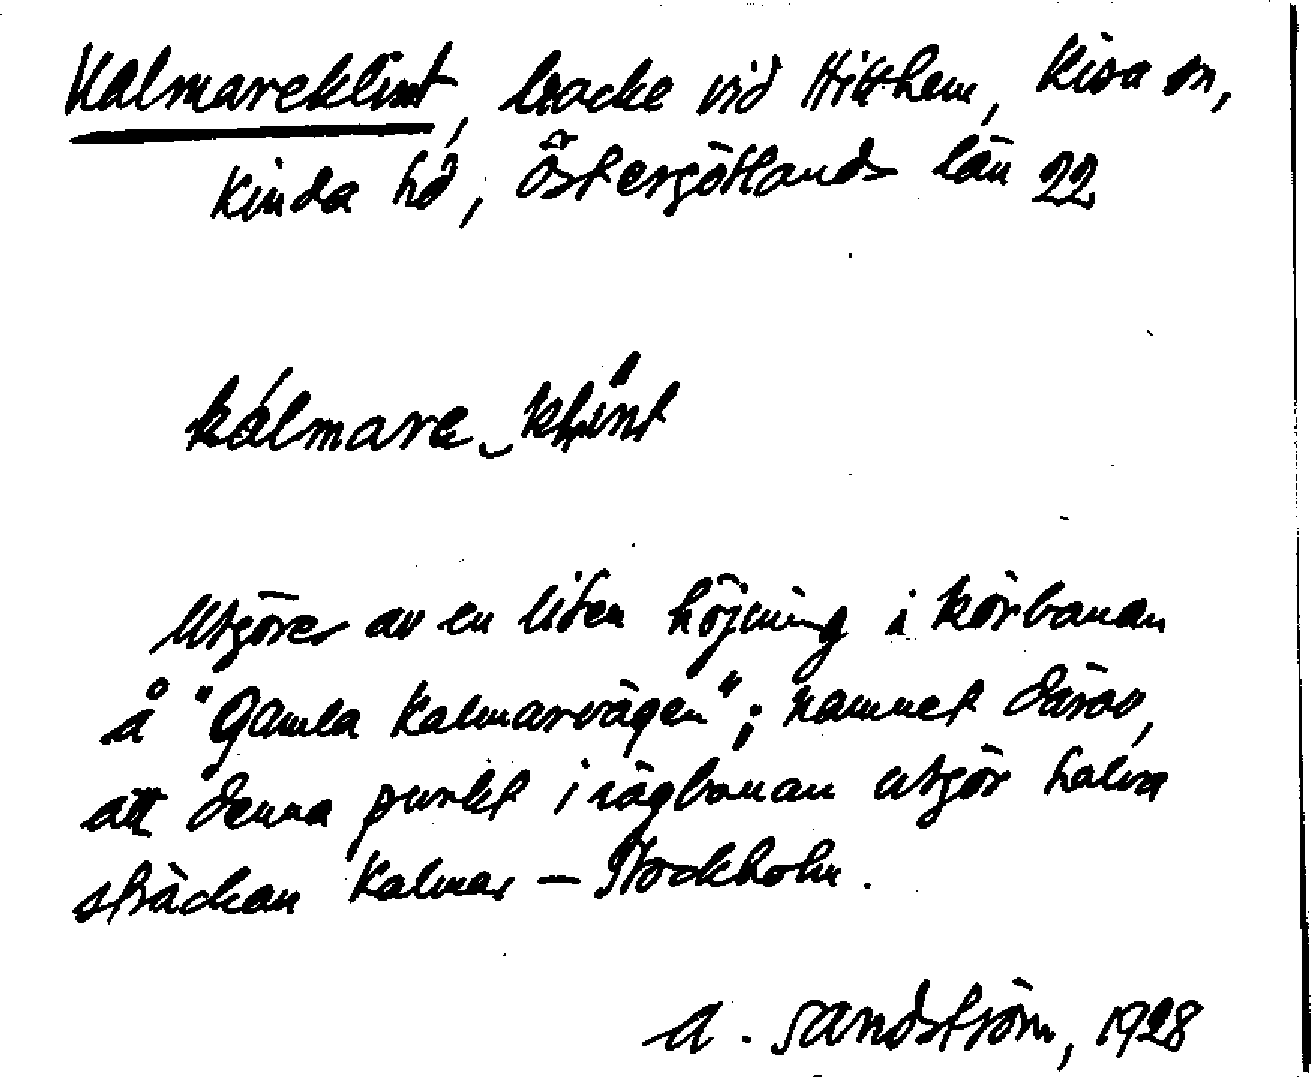 Kalmareklint, backe vid Hitthem, Kisa sn,
Kinda hd, Östergötlands län 22
kálmare‿klint
Utgöres av en liten höjning i körbanan
å "Gamla Kalmarvägen"; namnet därav,
att denna punkt i vägbanan utgör halva
sträckan Kalmar – Stockholm.
A. Sandström, 1928